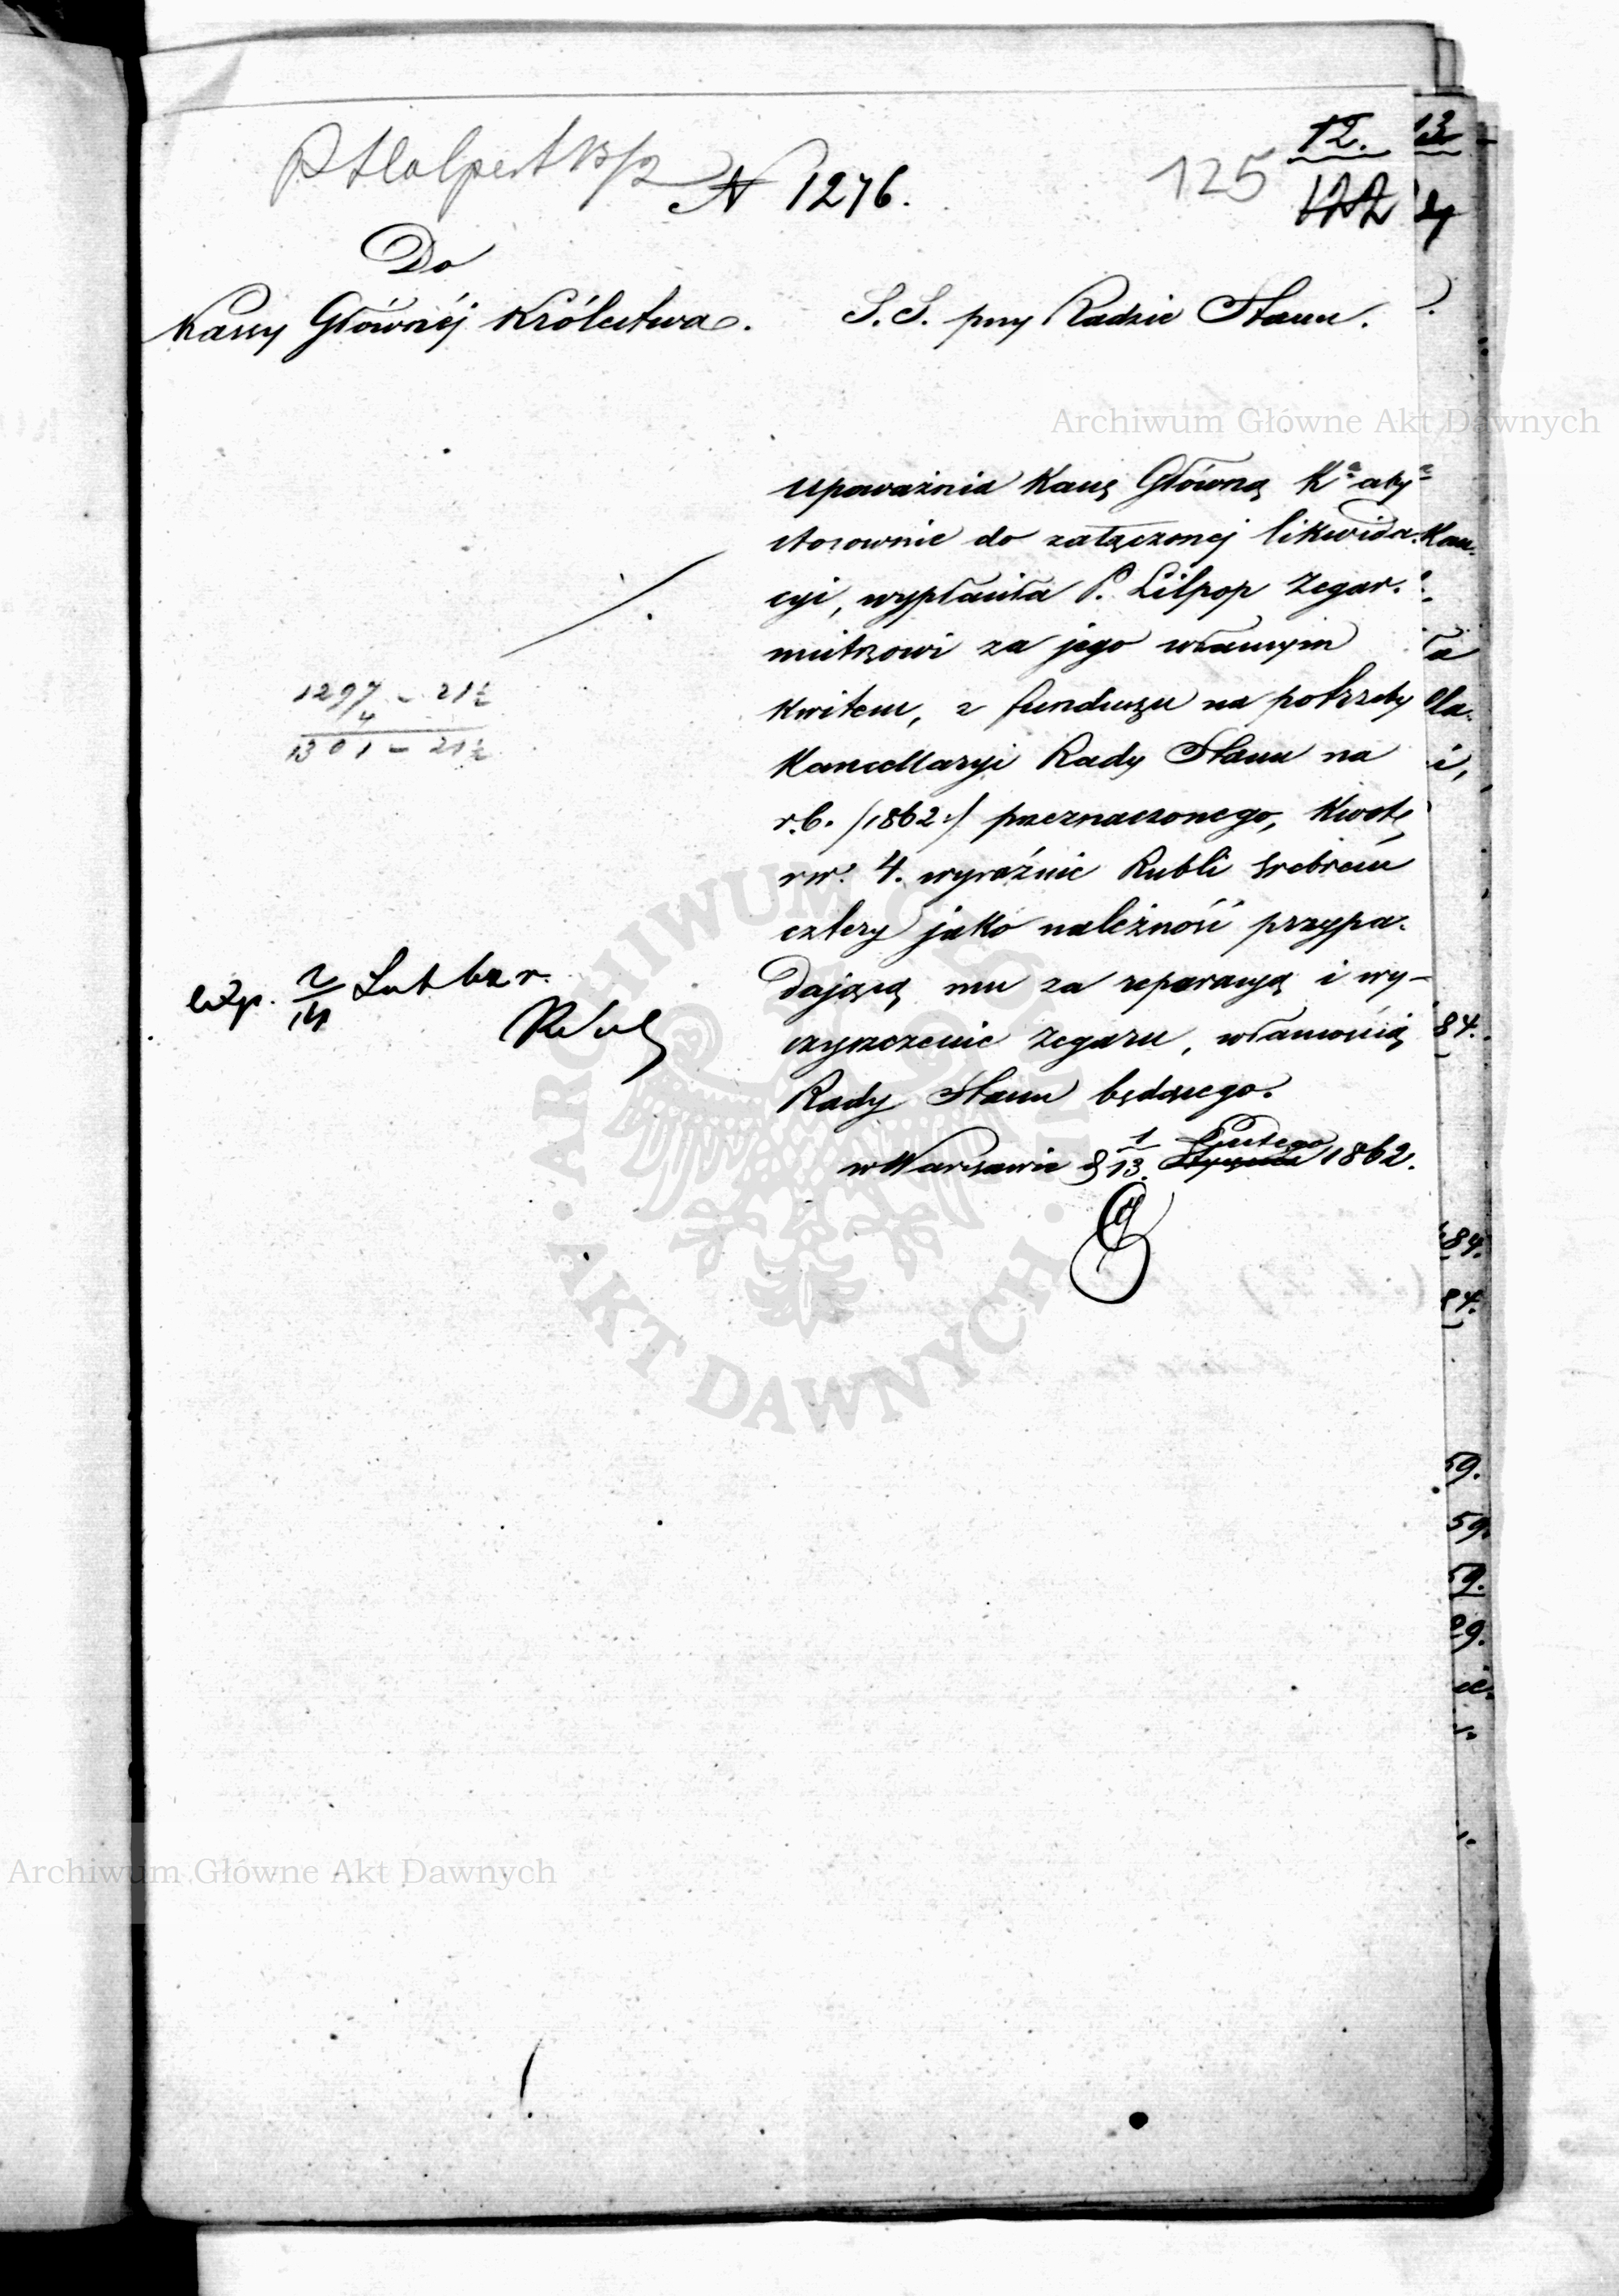 P Halpert 13/2
N 1276.
125
12.
122
Do
Kassy Głównéj Królestwa.
S. S. przy Radzie Stanu.
Archiwum Główne Akt Dawnych
upoważnia Kassę Główną K. aby
stosownie do załączonej likwida.
cyi, wypłaciła P. Lilpop Zegar.
mistrzowi za jego własnym
kwitem, z funduszu na potrzeby
Kancellaryi Rady Stanu na
r.b. /1862./ przeznaczonego, kwotę
rsr. 4. wyraźnie Rubli srebrem
cztery jako należność przypa.
dającą mu za reparacyą i wy-
czyszczenie zegaru, własnością
Rady Stanu będącego.
w Warszawie d 1/13. Stycznia Lutego 1862.
1297 - 21½
4
1301 - 21½
exp. 2/14 Lut br.
ARCHIWUM GŁÓWNE
AKT DAWNYCH
Archiwum Główne Akt Dawnych
13
84.
84.
84.
59.
59.
59.
29.